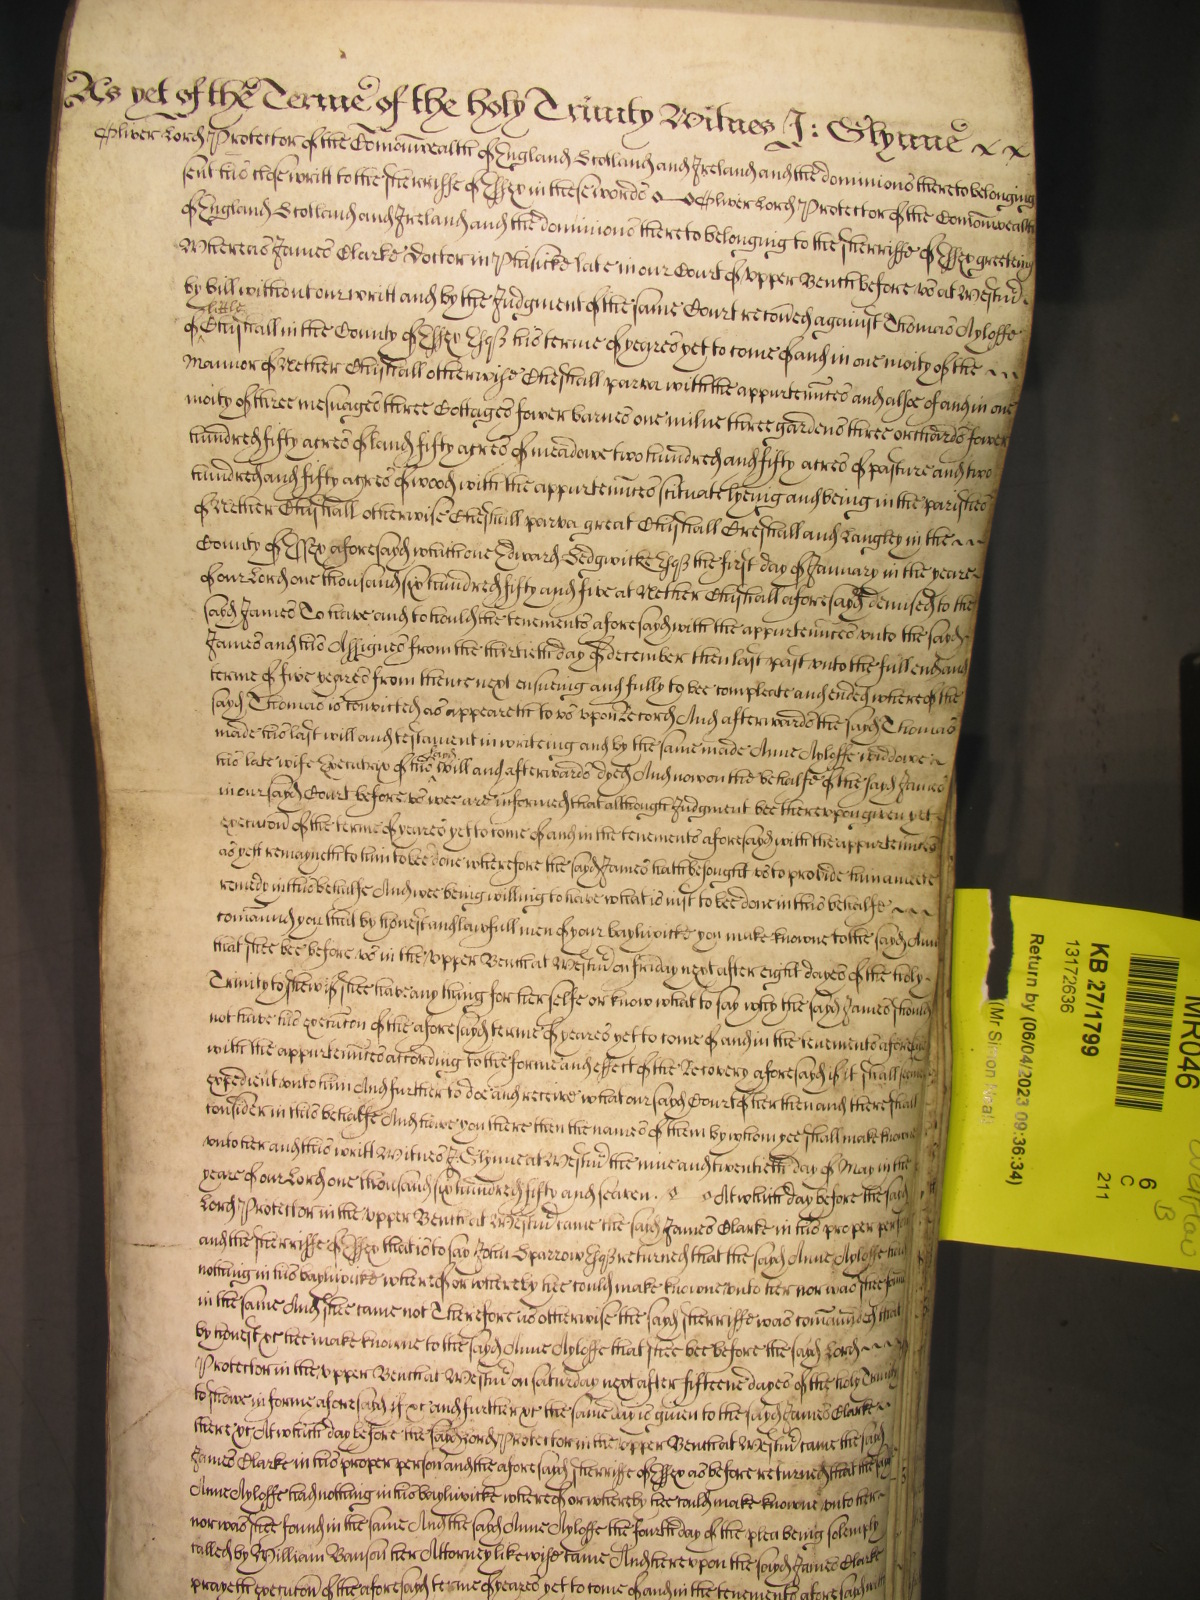 As yet of the Terme of the holy Trinity Witnes J: Glynne
Oliver Lord Protector of the Comonwealth of England Scotland and Ireland and the dominions thereto belonging
sent his close writt to the Sherriffe of Essex in these words Oliver Lord Protector of the Comonwealth
of England Scotland and Ireland and the dominions thereto belonging to the Sherriffe of Essex greeteing
Whereas James Clarke Doctor in Phisicke late in our Court of Upper Bench before us at Westm̄
by bill without our writt and by the Judgment of the same Court recoūed against Thomas Ayloffe
little
of Chishall in the County of Essex Esqr his terme of yeares yet to come of and in one moity of the
Mannor of Nether Chishall otherwise Chishall parva with the appurtennc̄es and alsoe of and in one
moity of three mesuages three Cottages fower barnes one milne three gardens three orchards fower
hundred fifty acres of land fifty acres of meadowe two hundred and fifty acres of pasture and two
hundred and fifty acres of wood with the appurtennc̄es scituate lyeing and being in the parishes
of Nether Chishall otherwise Chishall parva great Chishall Creshall and Langley in the
County of Essex aforesayd which one Edward Sedgwicke Esqr the first day of January in the yeare
of our Lord one thousand six hundred fifty and five at Nether Chishall aforesayd demised to the
sayd James To have and to hould the tenements aforesayd with the appurtennc̄es unto the sayd
James and his Assignes from the thirtieth day of December then last past unto the full end and
terme of five yeares from thence next ensueing and fully to bee compleate and ended whereof the
sayd Thomas is convicted as appeareth to us upon Record And afterwards the sayd Thomas
made his last will and testament in writeing and by the same made Anne Ayloffe widdowe
sayd
his late wife Executrix of his will and afterwards dyed And now on the behalfe of the sayd James
in our sayd Court before us wee are informed that although Judgment bee thereupon given yet
execuc̄on of the terme of yeares yet to come of and in the tenements aforesayd with the appurtennc̄es
as yett remayneth to him to bee done wherefore the sayd James hath besought us to provide him a meete
remedy in this behalfe And wee being willing to have what is just to bee done in this behalfe
comaund you that by honest and lawfull men of your bayliwicke you make knowne to the sayd Ann
that shee bee before us in the Upper Bench at Westm̄ on friday next after eight dayes of the holy
Trinity to shew if shee have any thing for her selfe or know what to say why the sayd James should
not have his execuc̄on of the aforesayd terme of yeares yet to come of and in the tenements aforesayd
with the appurtennc̄es according to the forme and effect of the Recovery aforesayd if it shall seeme
expedient unto him And further to doe and receive what our sayd Court of her then and there shall
consider in this behalfe And have you there then the names of them by whom yee shall make knowne
unto her and this writt Witnes J: Glynne at Westm̄ the nine and twentieth day of May in the
yeare of our Lord one thousand six hundred fifty and seaven. At which day before the sayd
Lord Protector in the Upper Bench at Westm̄ came the sayd James Clarke in his proper person
and the Sherriffe of Essex that is to say John Sparrow Esqr returned that the sayd Anne Ayloffe had
nothing in his bayliwicke whereof or whereby hee could make knowne unto her nor was shee found
in the same And shee came not Therefore as otherwise the sayd Sherriffe was comaunded that
by honest &c hee make knowne to the sayd Anne Ayloffe that shee bee before the sayd Lord
Protector in the Upper Bench at Westm̄ on saturday next after fifteene dayes of the holy Trinity
to shewe in forme aforesayd if &c and further &c the same day is given to the sayd James Clarke
there &c At which day before the sayd Lord Protector in the Upper Bench at Westm̄ came the sayd
James Clarke in his proper person and the aforesayd Sherriffe of Essex as before returned that the sayd
Anne Ayloffe had nothing in his bayliwicke whereof or whereby hee could make knowne unto her
nor was shee found in the same And the sayd Anne Ayloffe the fourth day of the plea being solemply
called by William Banson her Attorney likewise came And thereupon the sayd James Clarke
prayeth execuc̄on of the aforesayd terme of yeares yet to come of and in the tenements aforesayd with
MR046
KB 27/1799
13172636
Return by (06/04/2023 09:36:34)
(Mr Simon Neal)
6
C
211